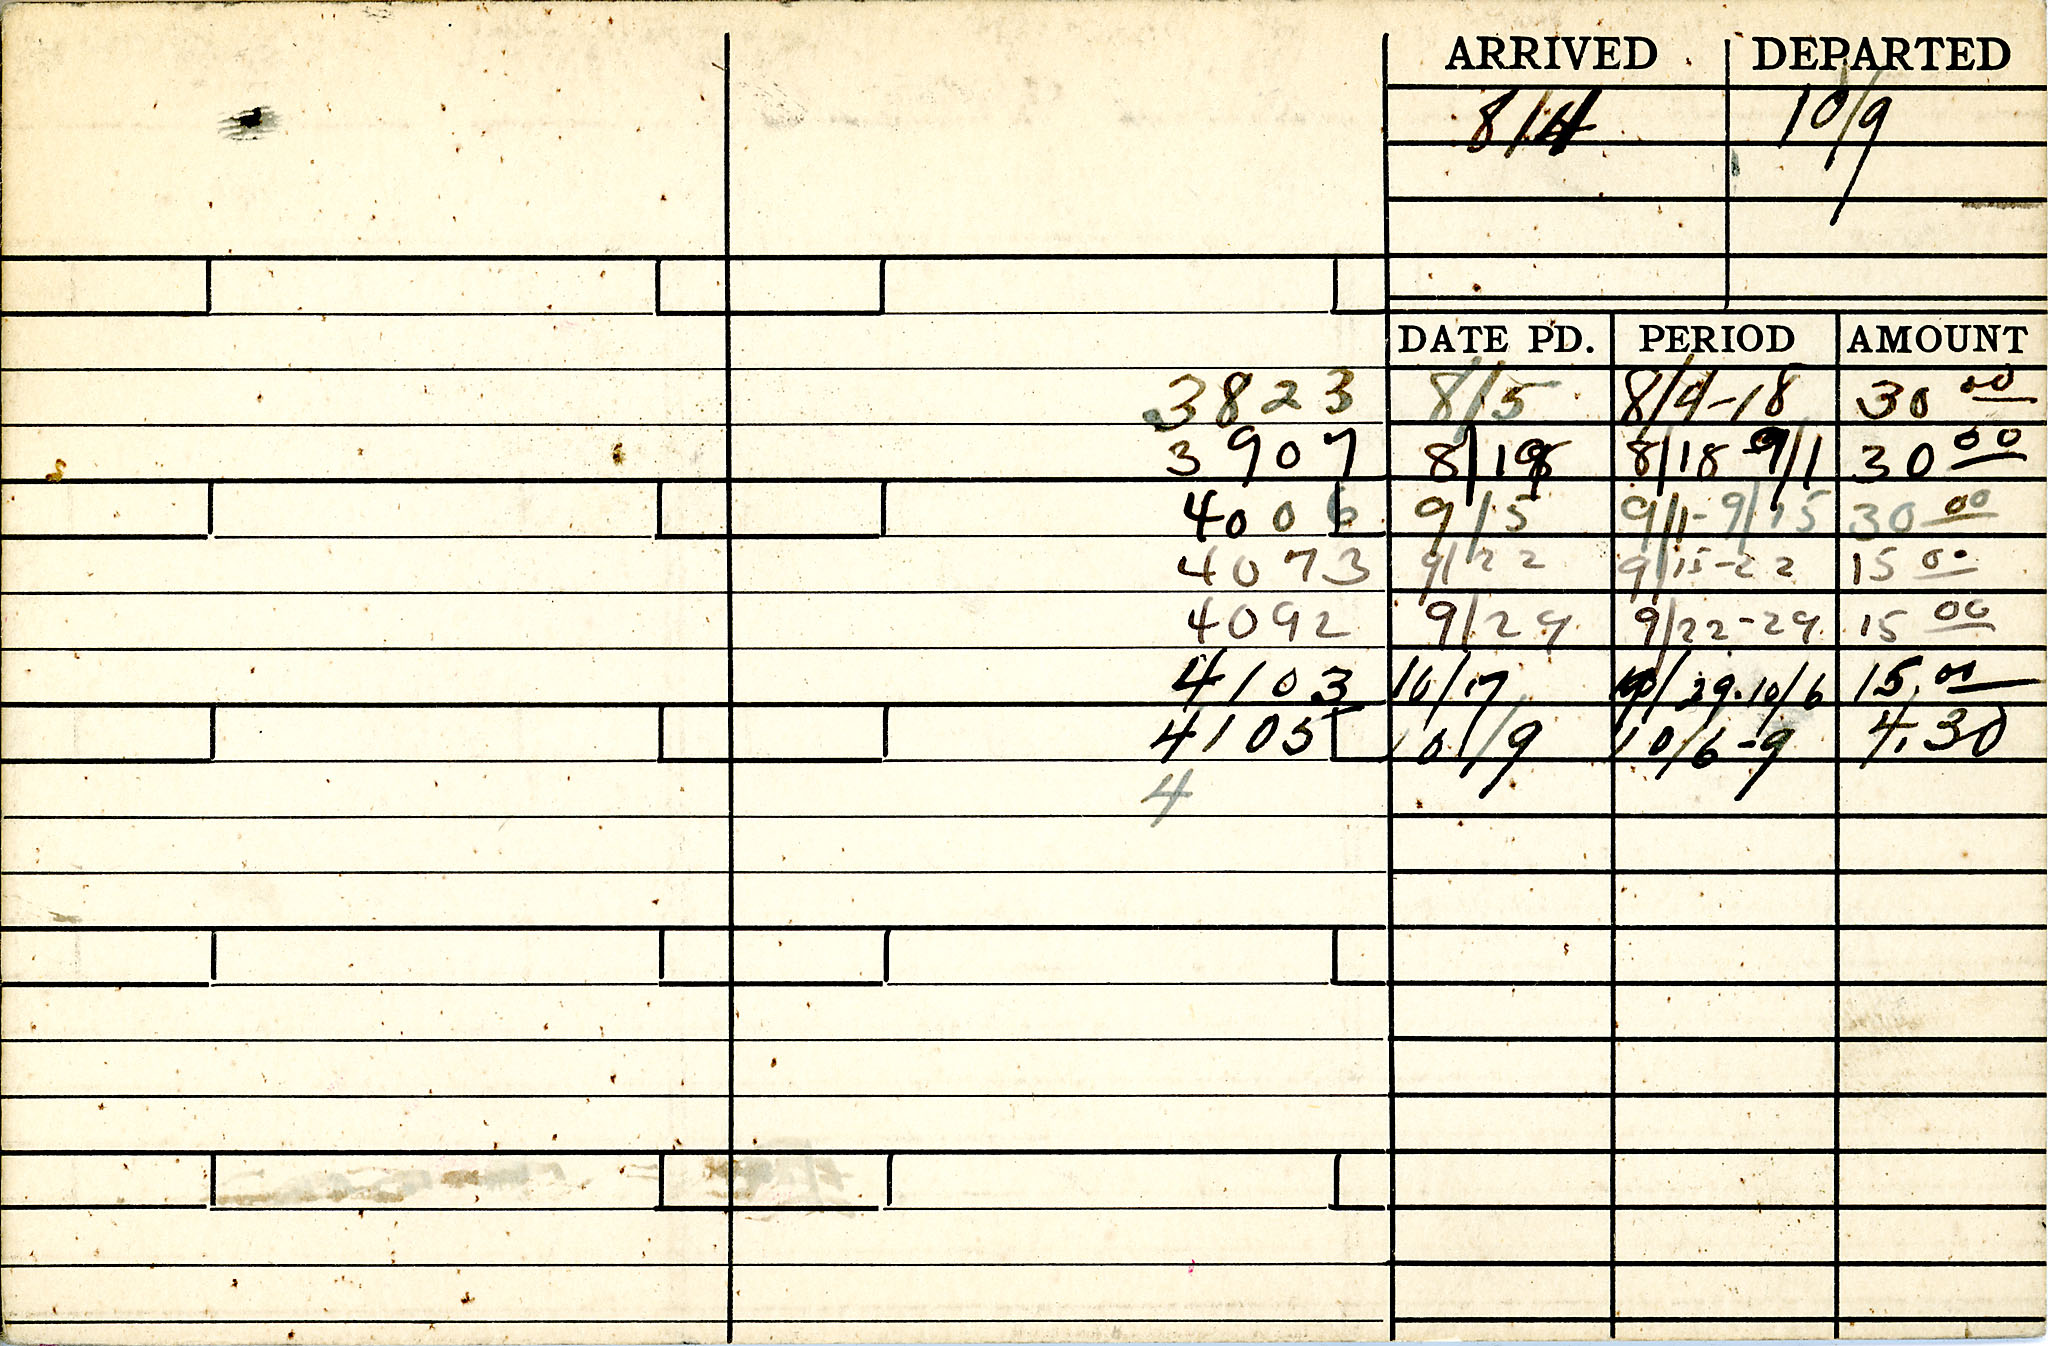 ARRIVED DEPARTED
8/4 10/9
DATE PD. PERIOD AMOUNT
3823 8/5 8/4-18 30 00
3907 8/18 8/18-9/1 30 00
4006 9/5 9/1-9/15 30 00
4073 9/22 9/15-22 15 00
4092 9/29 9/22-29 15 00
4103 10/7 9/29-10/6 15.00
4105 10/9 10/6-9 4.30
4